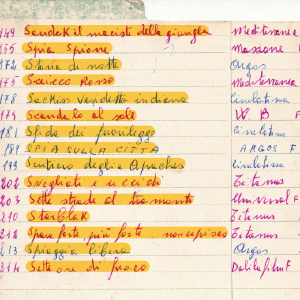 149 Sandok il maciste della giungla Mediterranea
155 Spia Spione Massone
174 Storia di notte Orgos
175 Sceicco Rosso Mediterranea
178 Sackiss vendetta indiana Cinelatina
179 Scandalo al sole W. B F
181 Sfida dei fuorilegge Cinelatina
189 SPIA SULLA CITTÀ ARGOS F
199 Sentiero degli Apaches Cinelatina
202 Svegliati e uccidi Titanus
203 Sette strade al tramonto Universal F
210 Starblak Titanus
212 Spara forte, più forte non capisco Titanus
213 Spiaggia libera Orgos
214 Sette ore di fuoco Delilafilm F